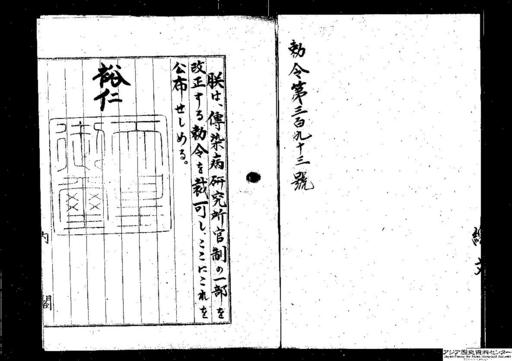 勅令第三百九十三號
朕は、傳染病研究所官制の一部を
改正する勅令を裁可し、ここにこれを
公布せしめる。
裕仁
内閣
アジア歴史資料センター